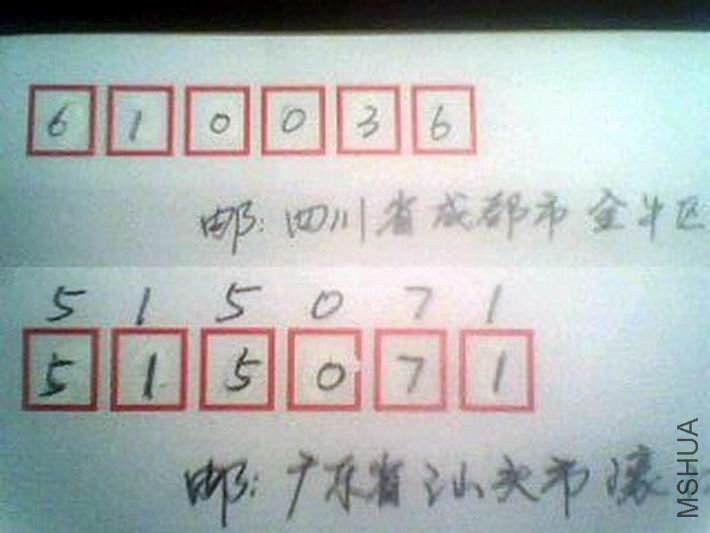 610036
邮: 四川省成都市金牛区
5 1 5 0 7 1
515071
邮: 广东省汕头市
MSHUA